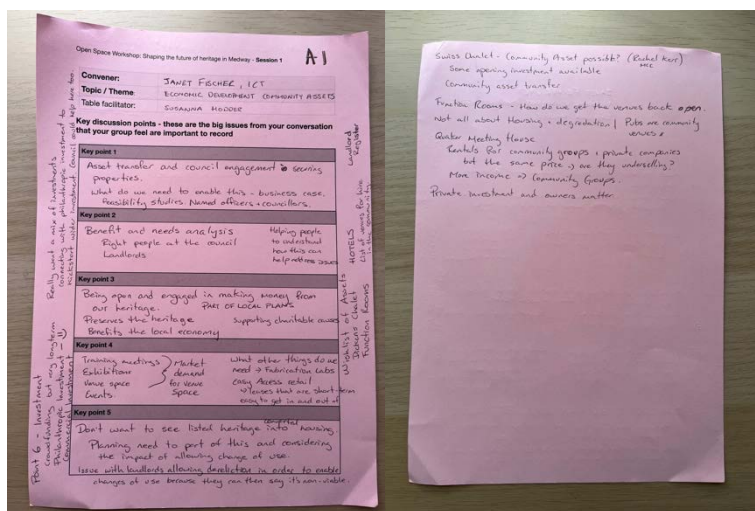 Open Space Workshop: Shaping the future of heritage in Medway - Session 1
A1
Convener: JANET FISCHER, ICT
Topic / Theme: ECONOMIC DEVELOPMENT COMMUNITY ASSETS
Table facilitator: SUSANNA HODDER
Key discussion points - these are the big issues from your conversation
that your group feel are important to record
Key point 1
Asset transfer and council engagement securing
properties.
What do we need to enable this - business case.
Feasibility studies. Named officers + councillors.
Key point 2
Benefit and needs analysis
Right people at the council
Landlords
Helping people
to understand
how this can
help address issues
Key point 3
Being open and engaged in making money from
our heritage. PART OF LOCAL PLANS
Preserves the heritage supporting charitable causes
Benefits the local economy
Key point 4
Training meetings
Exhibitions
Venue space
Events.
Market
demand
for Venue
Space
What other things do we
need → Fabrication Labs
easy Access retail
→ leases that are short-term
easy to get in and out of
Key point 5
Don't want to see listed heritage converted into housing.
Planning need to part of this and considering
the impact of allowing change of use.
Issue with landlords allowing dereliction in order to enable
changes of use because they can then say it's non-viable.
Point 6 - Investment
Crowdfunding but very longterm
Philanthropic Investment - =)
Commercial Investment
Really want a mix of investments
connecting with philanthropic investment to
kickstart wider investment. Council could help here too.
Wishlist of Assets
Dickens Chalet
Function Rooms
HOTELS
List of venues for hire
in the community
Landlord
Register
Swiss Chalet - Community Asset possible? (Rachel Kerr)
Some opening investment available
Community asset transfer
Function Rooms - How do we get the venues back open.
Not all about Housing + degradation | Pubs are community
venues
Quaker Meeting House
Rentals for community groups + private companies
but the same price, are they underselling?
More Income → Community Groups.
Private Investment and owners matter.